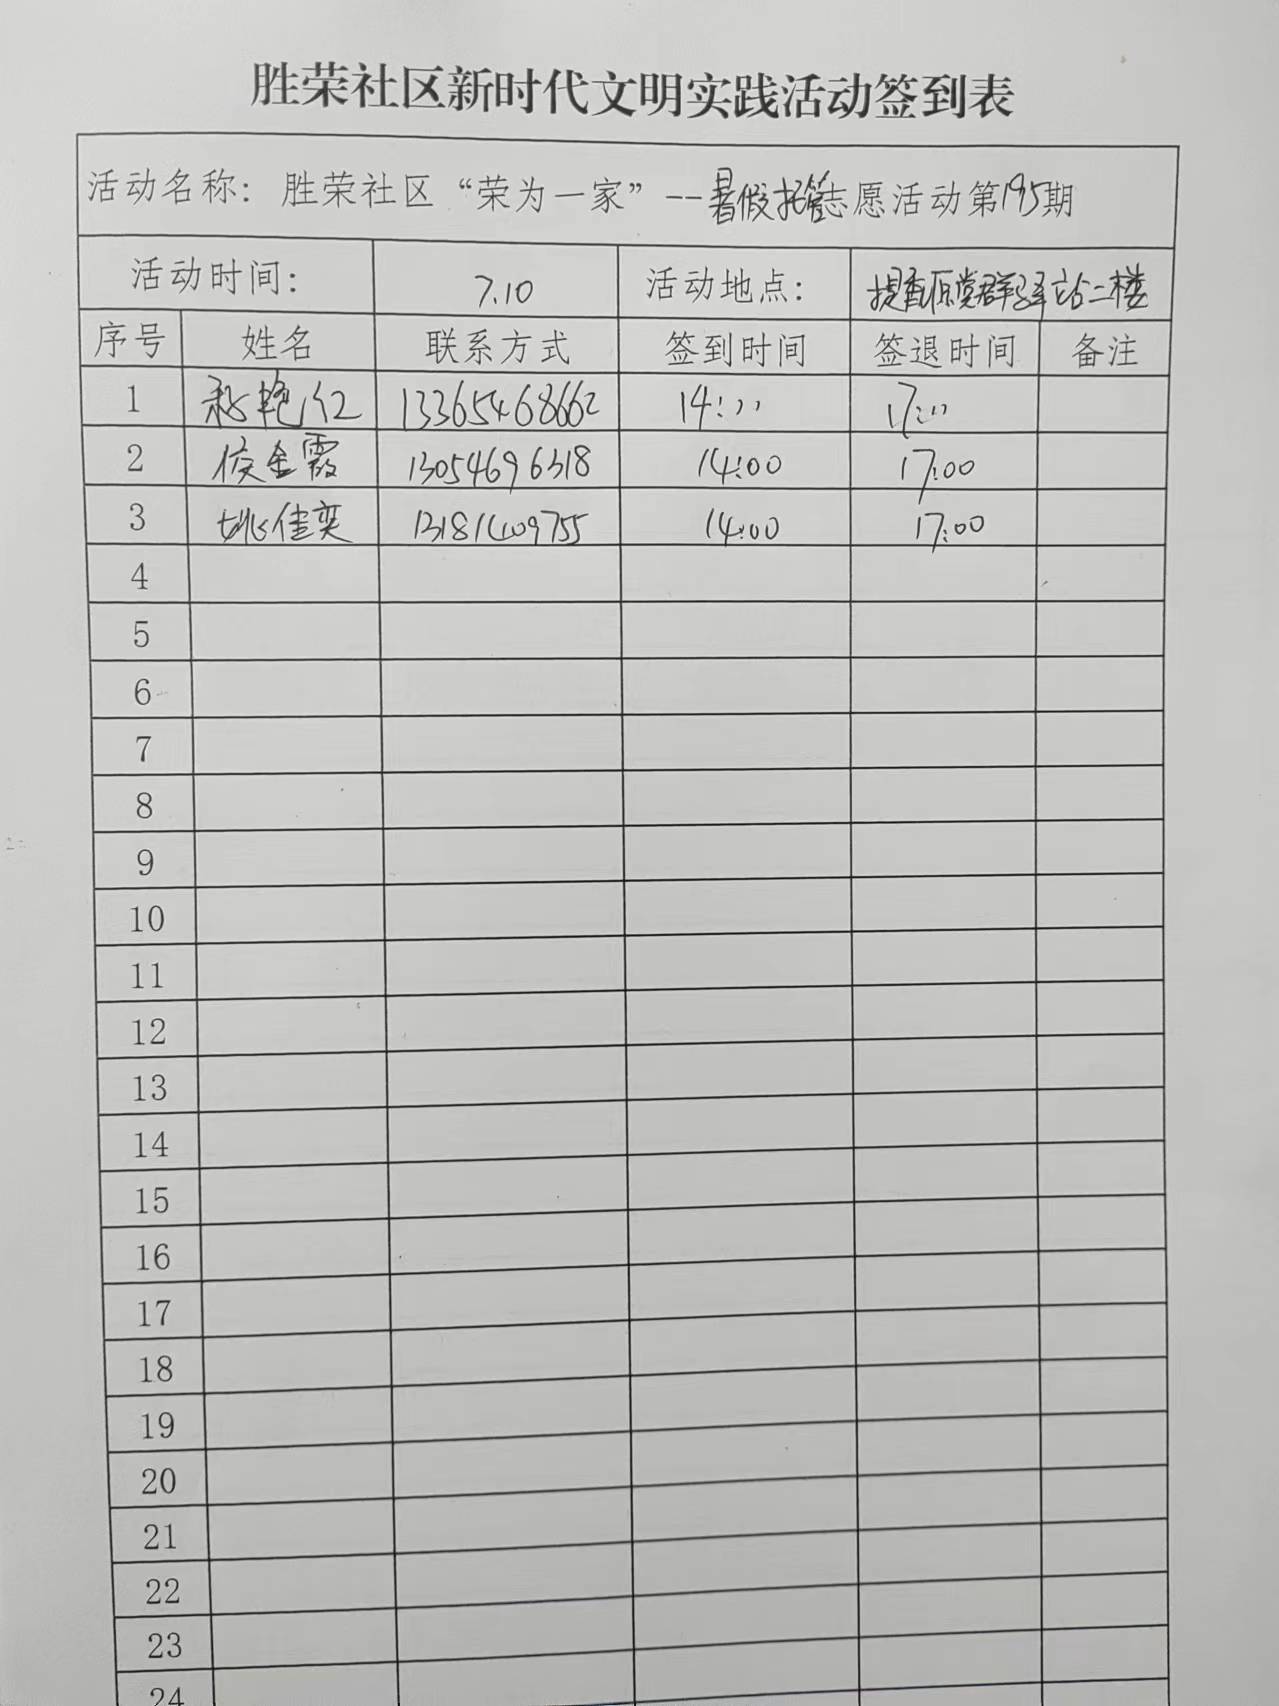 胜荣社区新时代文明实践活动签到表
活动名称：胜荣社区“荣为一家”--暑假托管志愿活动第195期
活动时间： 7.10 活动地点： 党群驿站二楼
序号 姓名 联系方式 签到时间 签退时间 备注
1 艳红 13365468662 14:00 17:00
2 侯金霞 13054696318 14:00 17:00
3 姚佳奕 13181409755 14:00 17:00
4
5
6
7
8
9
10
11
12
13
14
15
16
17
18
19
20
21
22
23
24